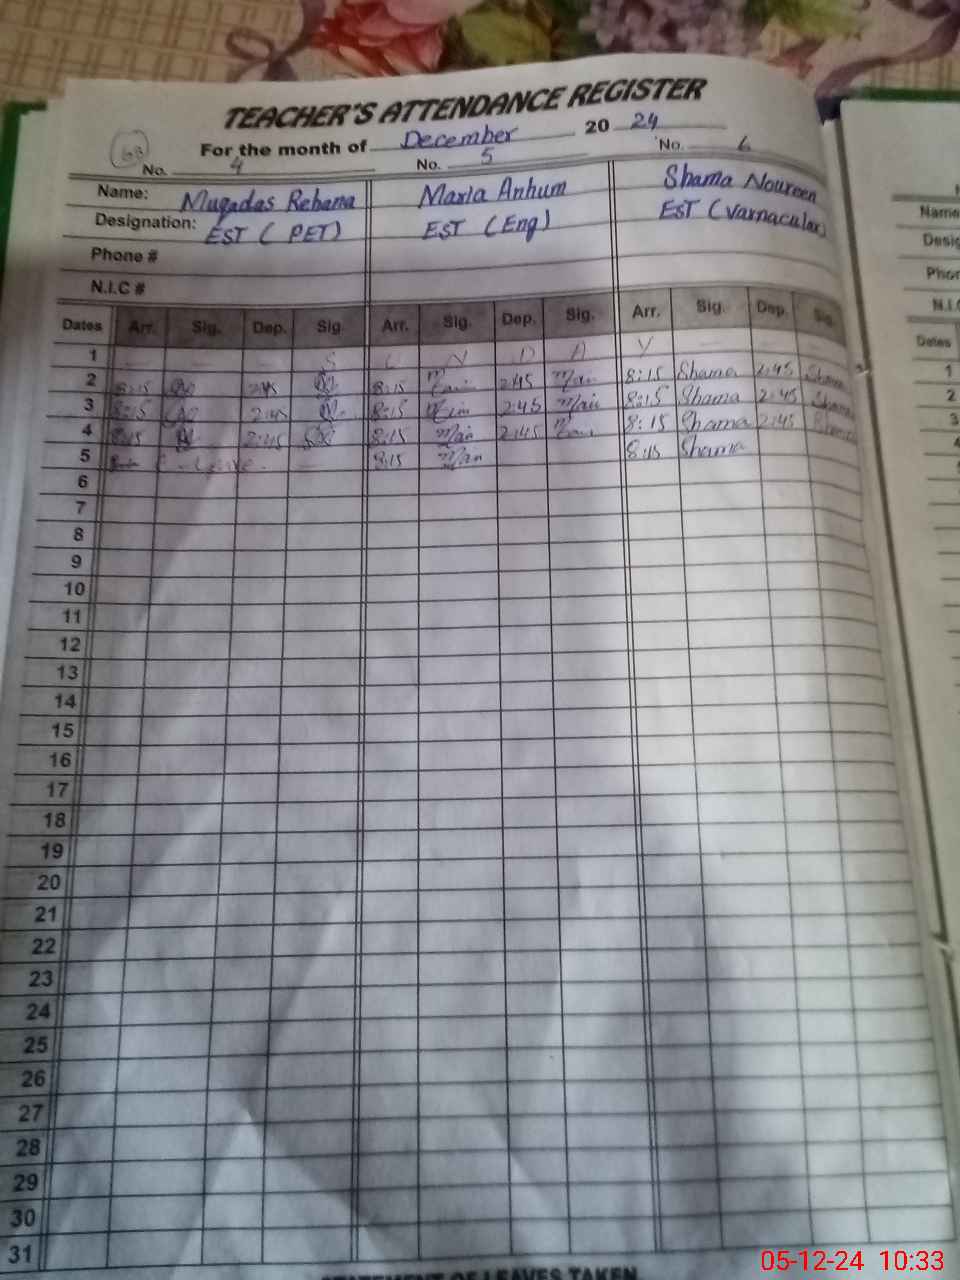 TEACHER'S ATTENDANCE REGISTER
For the month of December 2024
63
No. 4 No. 5 No. 6
Name: Muqadas Rehana Maria Anhum Shama Noureen
Designation: EST (PET) EST (Eng) EST (Varnacular)
Phone #
N.I.C #
Dates Arr. Sig. Dep. Sig. Arr. Sig. Dep. Sig. Arr. Sig. Dep. Sig.
1 S U N D A Y
2 8:15 2:45 8:15 2:45 8:15 Shama 2:45 Shama
3 8:15 2:45 8:15 2:45 8:15 Shama 2:45 Shama
4 8:15 2:45 8:15 2:45 8:15 Shama 2:45 Shama
5 Leave 8:15 8:15 Shama
6
7
8
9
10
11
12
13
14
15
16
17
18
19
20
21
22
23
24
25
26
27
28
29
30
31
STATEMENT OF LEAVES TAKEN
Name
Dates
1
2
3
05-12-24 10:33